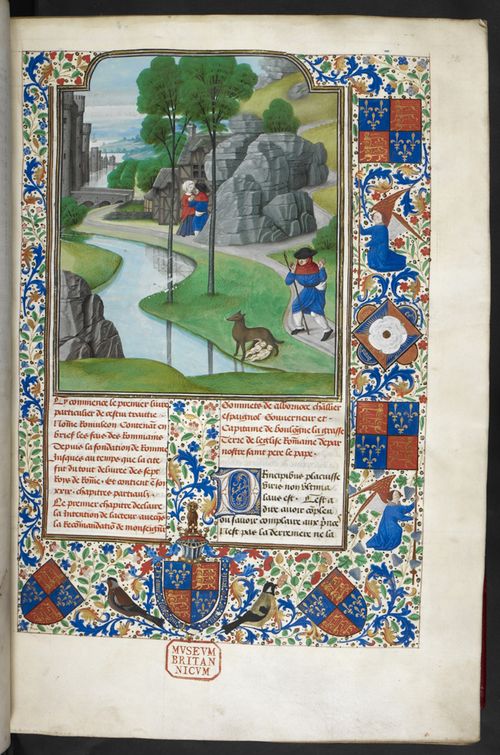 Cy commence le premier liure
particulier de cestui traittie
Romuleon Contenant en
brief les fais des Rommains
Depuis la fondation de Romme
Jusques au temps que la cite
fut du tout deliure des sept
Roys de Rome. Et contient
xxix. chapitres partiaulx.
Le premier chapitre declaire
la Intention de lacteur auecqs
la Recommandatio de monseigne
Gommets de albornox chllier
espaignol Gouuerneur et
Capitaine de boulogne la grasse
Terre de leglise Romaine depar
nostre saint pere le pape.
Principibus placuisse
viris non vltima
laus est. Cest a
dire auoir
ou sauoir complaire aux
nest pas la derreniere ne la
MVSEVM
BRITAN
NICVM